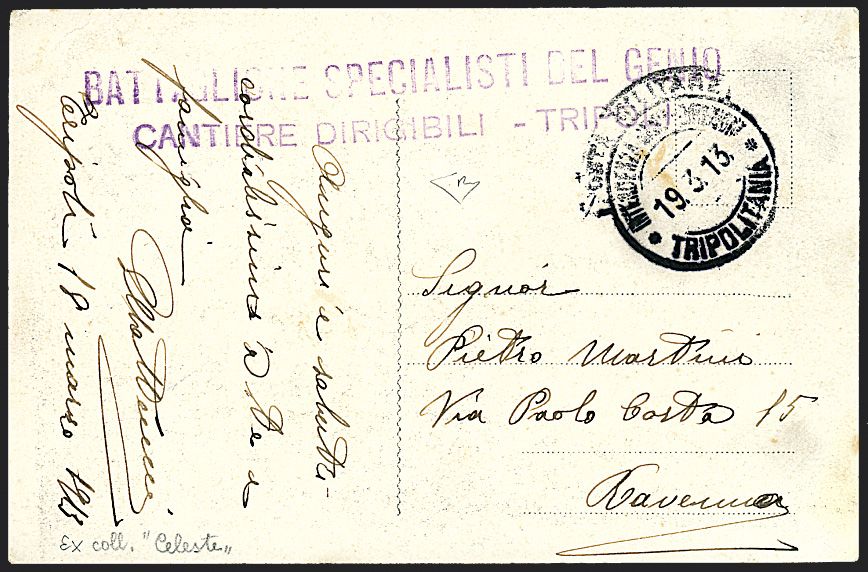 BATTAGLIONE SPECIALISTI DEL GENIO
CANTIERE DIRIGIBILI - TRIPOLI
POSTA MILITARE
INTENDENZA
19.3.13.
* TRIPOLITANIA *
Auguri e saluti
cordialissimi a Lei e
famiglia
Tripoli 18 marzo 1913
Signor
Pietro Martini
Via Paolo Costa 15
Ravenna
Ex coll. "Celeste"